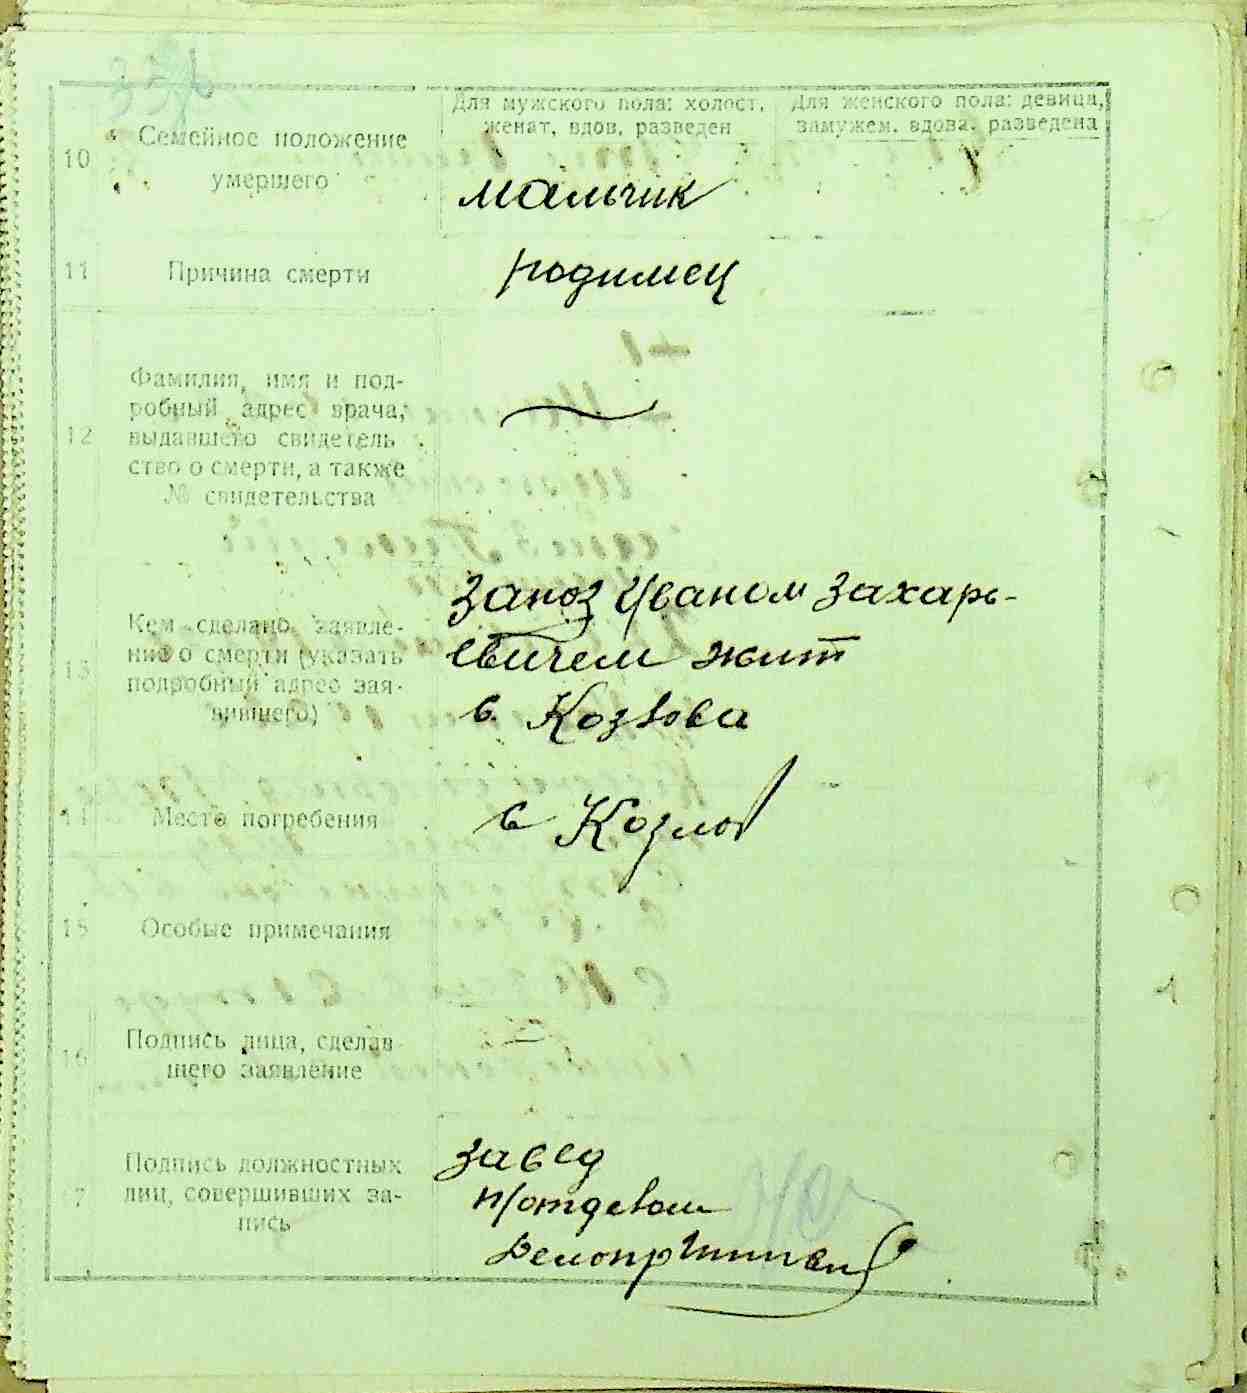 Для мужского пола: холост,
женат, вдов, разведен
Для женского пола: девица,
замужем, вдова, разведена
10
Семейное положение
умершего
мальчик
11
Причина смерти
родимец
12
Фамилия, имя и под-
робный адрес врача,
выдавшего свидетель
ство о смерти, а также
№ свидетельства
13
Кем сделано заявле-
ние о смерти (указать
подробный адрес зая-
вившего)
Заноз Иваном Захарь-
евичем жит
в Козлова
14
Место погребения
в Козлов
15
Особые примечания
16
Подпись лица, сделав
шего заявление
7
Подпись должностных
лиц, совершивших за-
пись
Завед
п/отделом